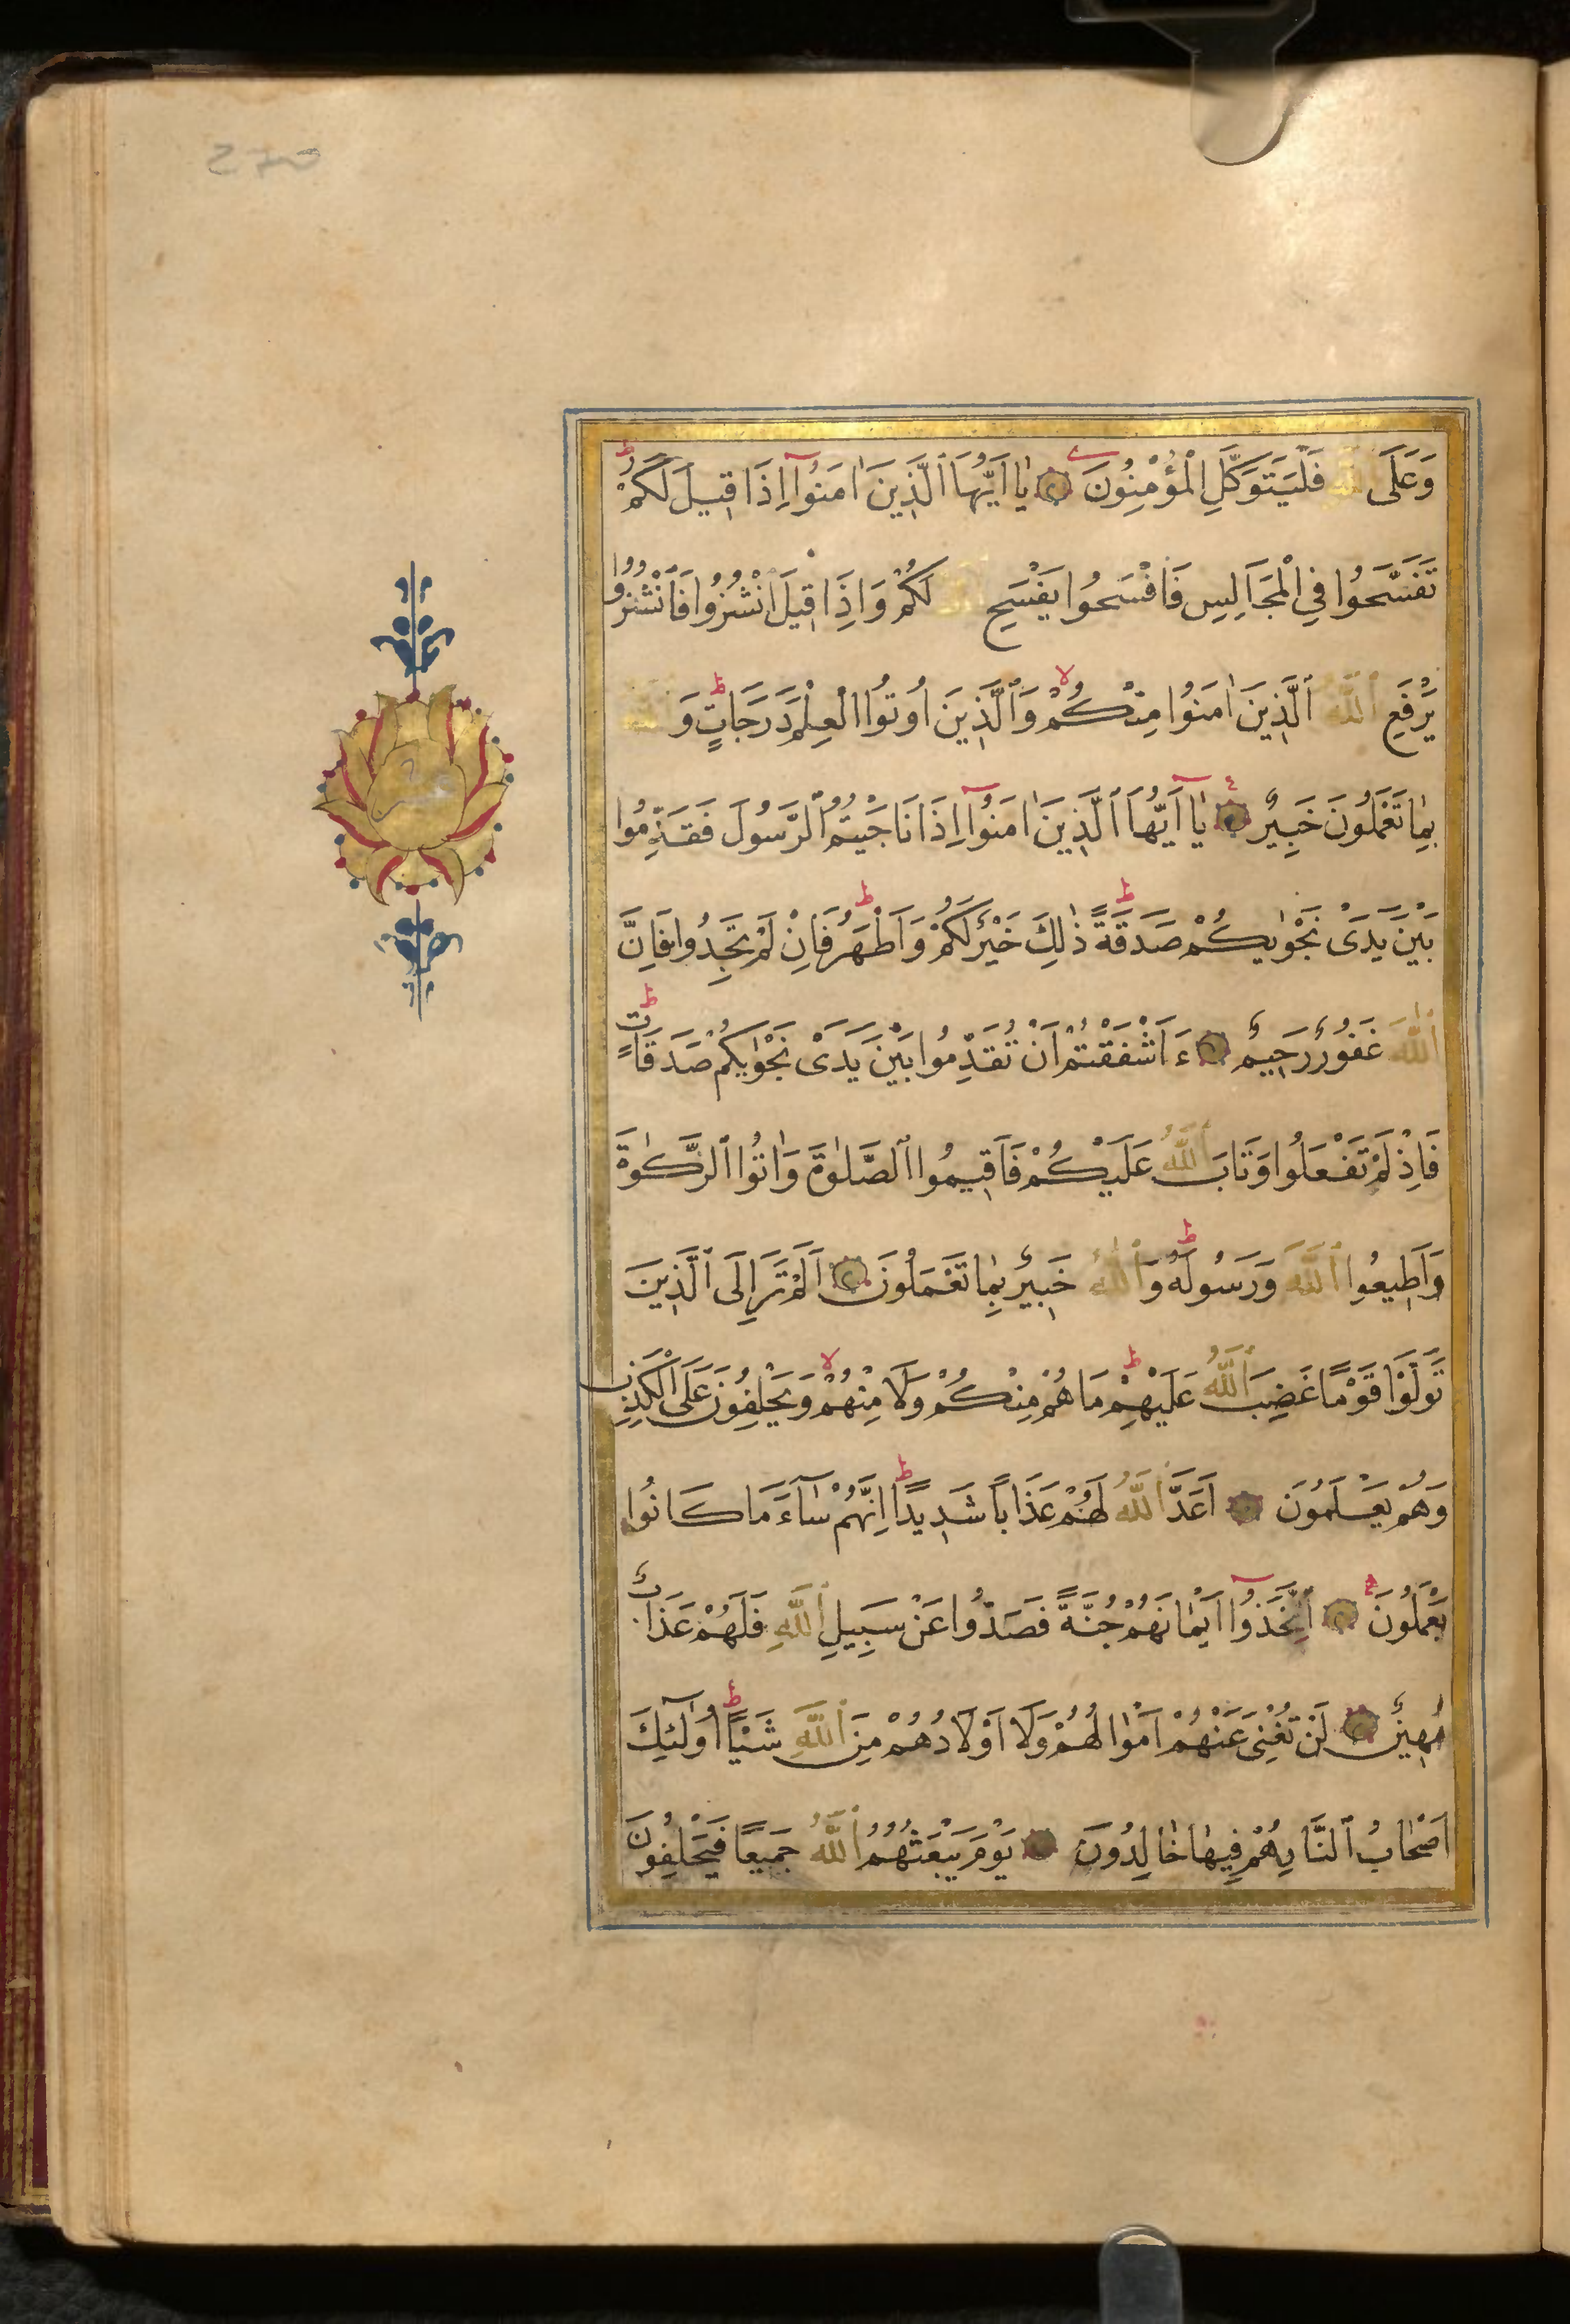 وَعَلَى اللّٰهِ فَلْيَتَوَكَّلِ الْمُؤْمِنُونَ يَا اَيُّهَا الَّذِينَ اٰمَنُوٓا اِذَا قِيلَ لَكُمْ
تَفَسَّحُوا فِي الْمَجَالِسِ فَافْسَحُوا يَفْسَحِ اللّٰهُ لَكُمْ وَاِذَا قِيلَ انْشُزُوا فَانْشُزُوا
يَرْفَعِ اللّٰهُ الَّذِينَ اٰمَنُوا مِنْكُمْ وَالَّذِينَ اُوتُوا الْعِلْمَ دَرَجَاتٍ وَ اللّٰهُ
بِمَا تَعْمَلُونَ خَبِيرٌ يَا اَيُّهَا الَّذِينَ اٰمَنُوٓا اِذَا نَاجَيْتُمُ الرَّسُولَ فَقَدِّمُوا
بَيْنَ يَدَىْ نَجْوٰيكُمْ صَدَقَةً ذٰلِكَ خَيْرٌ لَكُمْ وَاَطْهَرُ فَاِنْ لَمْ تَجِدُوا فَاِنَّ
اللّٰهَ غَفُورٌ رَحِيمٌ ءَاَشْفَقْتُمْ اَنْ تُقَدِّمُوا بَيْنَ يَدَىْ نَجْوٰيكُمْ صَدَقَاتٍ
فَاِذْ لَمْ تَفْعَلُوا وَتَابَ اللّٰهُ عَلَيْكُمْ فَاَقِيمُوا الصَّلٰوةَ وَاٰتُوا الزَّكٰوةَ
وَاَطِيعُوا اللّٰهَ وَرَسُولَهُ وَاللّٰهُ خَبِيرٌ بِمَا تَعْمَلُونَ اَلَمْ تَرَ اِلَى الَّذِينَ
تَوَلَّوْا قَوْمًا غَضِبَ اللّٰهُ عَلَيْهِمْ مَا هُمْ مِنْكُمْ وَلَا مِنْهُمْ وَيَحْلِفُونَ عَلَى الْكَذِبِ
وَهُمْ يَعْلَمُونَ اَعَدَّ اللّٰهُ لَهُمْ عَذَابًا شَدِيدًا اِنَّهُمْ سَآءَ مَا كَانُوا
يَعْمَلُونَ اِتَّخَذُوٓا اَيْمَانَهُمْ جُنَّةً فَصَدُّوا عَنْ سَبِيلِ اللّٰهِ فَلَهُمْ عَذَابٌ
مُهِينٌ لَنْ تُغْنِىَ عَنْهُمْ اَمْوَالُهُمْ وَلَا اَوْلَادُهُمْ مِنَ اللّٰهِ شَيْئًا اُولٰٓئِكَ
اَصْحَابُ النَّارِ هُمْ فِيهَا خَالِدُونَ يَوْمَ يَبْعَثُهُمُ اللّٰهُ جَمِيعًا فَيَحْلِفُونَ